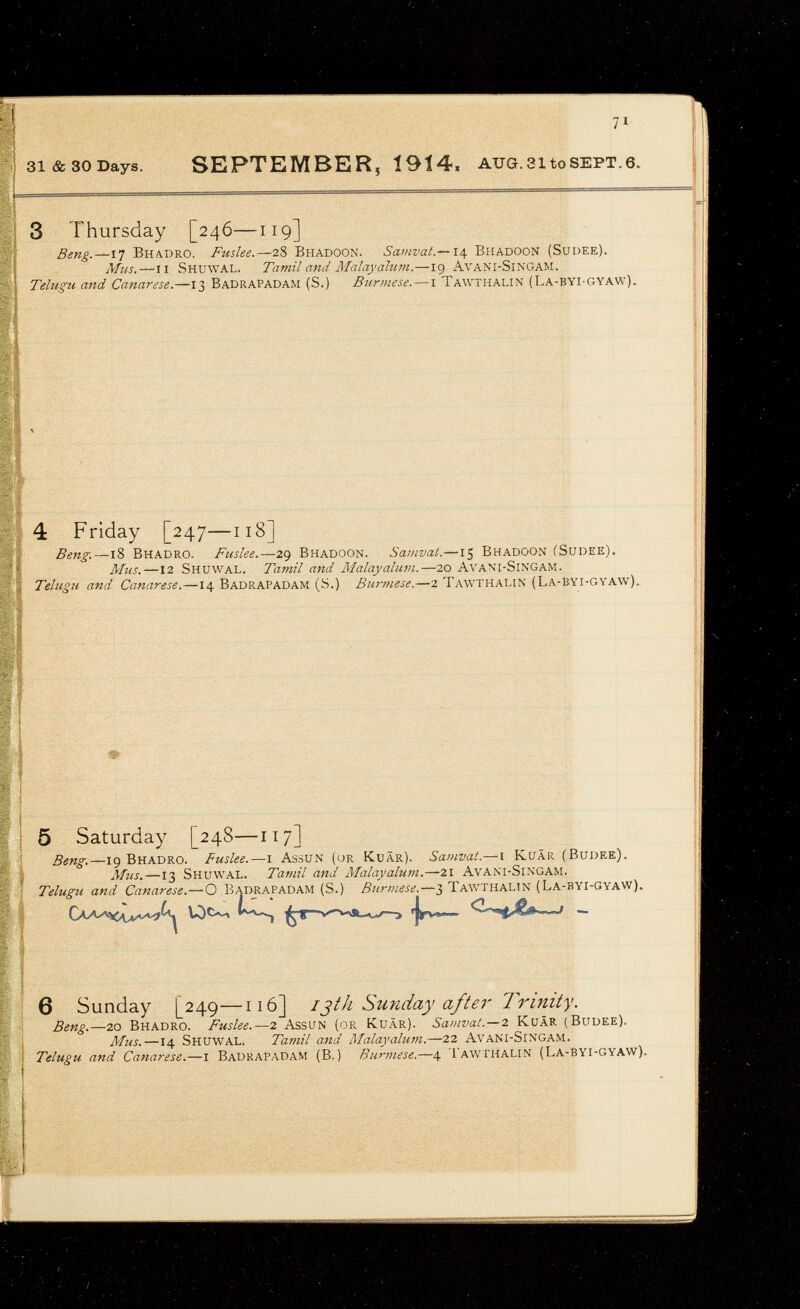 71
31 & 30 Days. SEPTEMBER, 1914. AUG. 31 to SEPT. 6.
3 Thursday [246—119]
Beng.—17 BHADRO. Fuslee.—28 BHADOON. Samvat.—14 BHADOON (SUDEE).
Mus.—11 SHUWAL. Tamil and Malayalum.—19 AVANI-SINGAM.
Telugu and Canarese.—13 BADRAPADAM (S.) Burmese.—1 TAWTHALIN (LA-BYI-GYAW).
4 Friday [247—118]
Beng.—18 BHADRO. Fuslee.—29 BHADOON. Samvat.—15 BHADOON (SUDEE).
Mus.—12 SHUWAL. Tamil and Malayalum.—20 AVANI-SINGAM.
Telugu and Canarese.—14 BADRAPADAM (S.) Burmese.—2 TAWTHALIN (LA-BYI-GYAW).
5 Saturday [248—117]
Beng.—19 BHADRO. Fuslee.—1 ASSUN (OR KUĀR). Samvat.—1 KUĀR (BUDEE).
Mus.—13 SHUWAL. Tamil and Malayalum.—21 AVANI-SINGAM.
Telugu and Canarese.—O BADRAPADAM (S.) Burmese.—3 TAWTHALIN (LA-BYI-GYAW).
6 Sunday [249—116] 13th Sunday after Trinity.
Beng.—20 BHADRO. Fuslee.—2 ASSUN (OR KUĀR). Samvat.—2 KUĀR (BUDEE).
Mus.—14 SHUWAL. Tamil and Malayalum.—22 AVANI-SINGAM.
Telugu and Canarese.—1 BADRAPADAM (B.) Burmese.—4 TAWTHALIN (LA-BYI-GYAW).